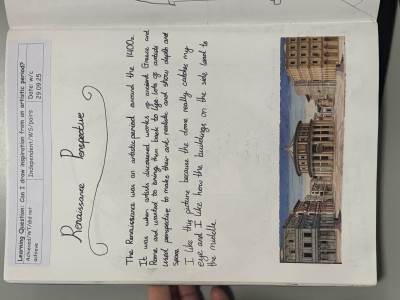 Learning Question: Can I draw inspiration from an artistic period?
Achieved/WT/did not achieve
Independent/WS/pairs
Date: w/c 29.09.25
Renaissance Perspective
The Renaissance was an artistic period around the 1400s.
It was when artists discovered works of ancient Greece and
Rome and wanted to bring them back to life. Lots of artists
used perspective to make their art realistic and show depth and
space.
I like this picture because the dome really catches my
eye and I like how the buildings on the side lead to
the middle.